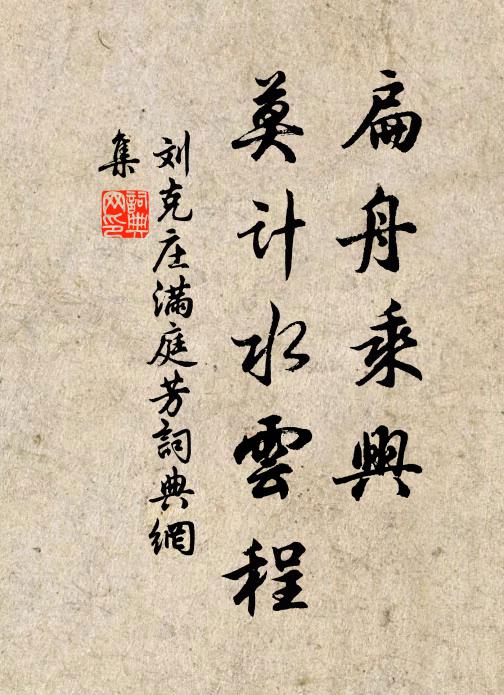 扁舟乘興
莫计水雲程
刘克庄满庭芳詞典網
集
詞典网印